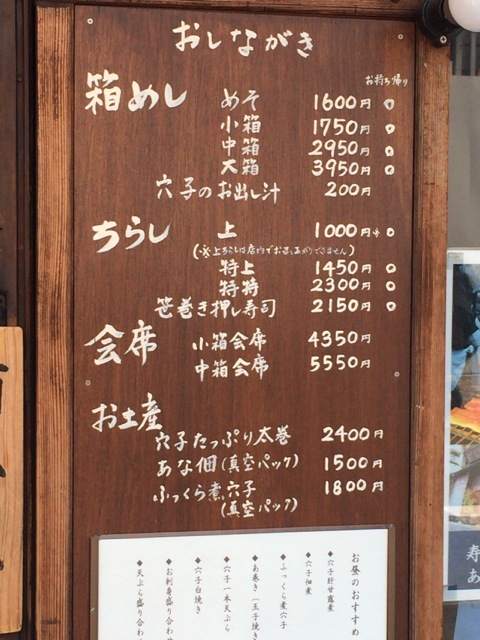 おしながき
お持ち帰り
箱めし めそ 1600円 ○
小箱 1750円 ○
中箱 2950円 ○
大箱 3950円 ○
穴子のお出し汁 200円
ちらし 上 1000円 ○
(※上ちらしは店内でお召しあがりできません)
特上 1450円 ○
特特 2300円 ○
笹巻き押し寿司 2150円 ○
会席 小箱会席 4350円
中箱会席 5550円
お土産
穴子たっぷり太巻 2400円
あな佃(真空パック) 1500円
ふっくら煮穴子 1800円
(真空パック)
お昼のおすすめ
◆穴子肝甘露煮
◆穴子佃煮
◆ふっくら煮穴子
◆あ巻き(玉子焼き
◆穴子一本天ぷら
◆穴子白焼き
◆お刺身盛り合わ
◆天ぷら盛り合わ
寿
あ